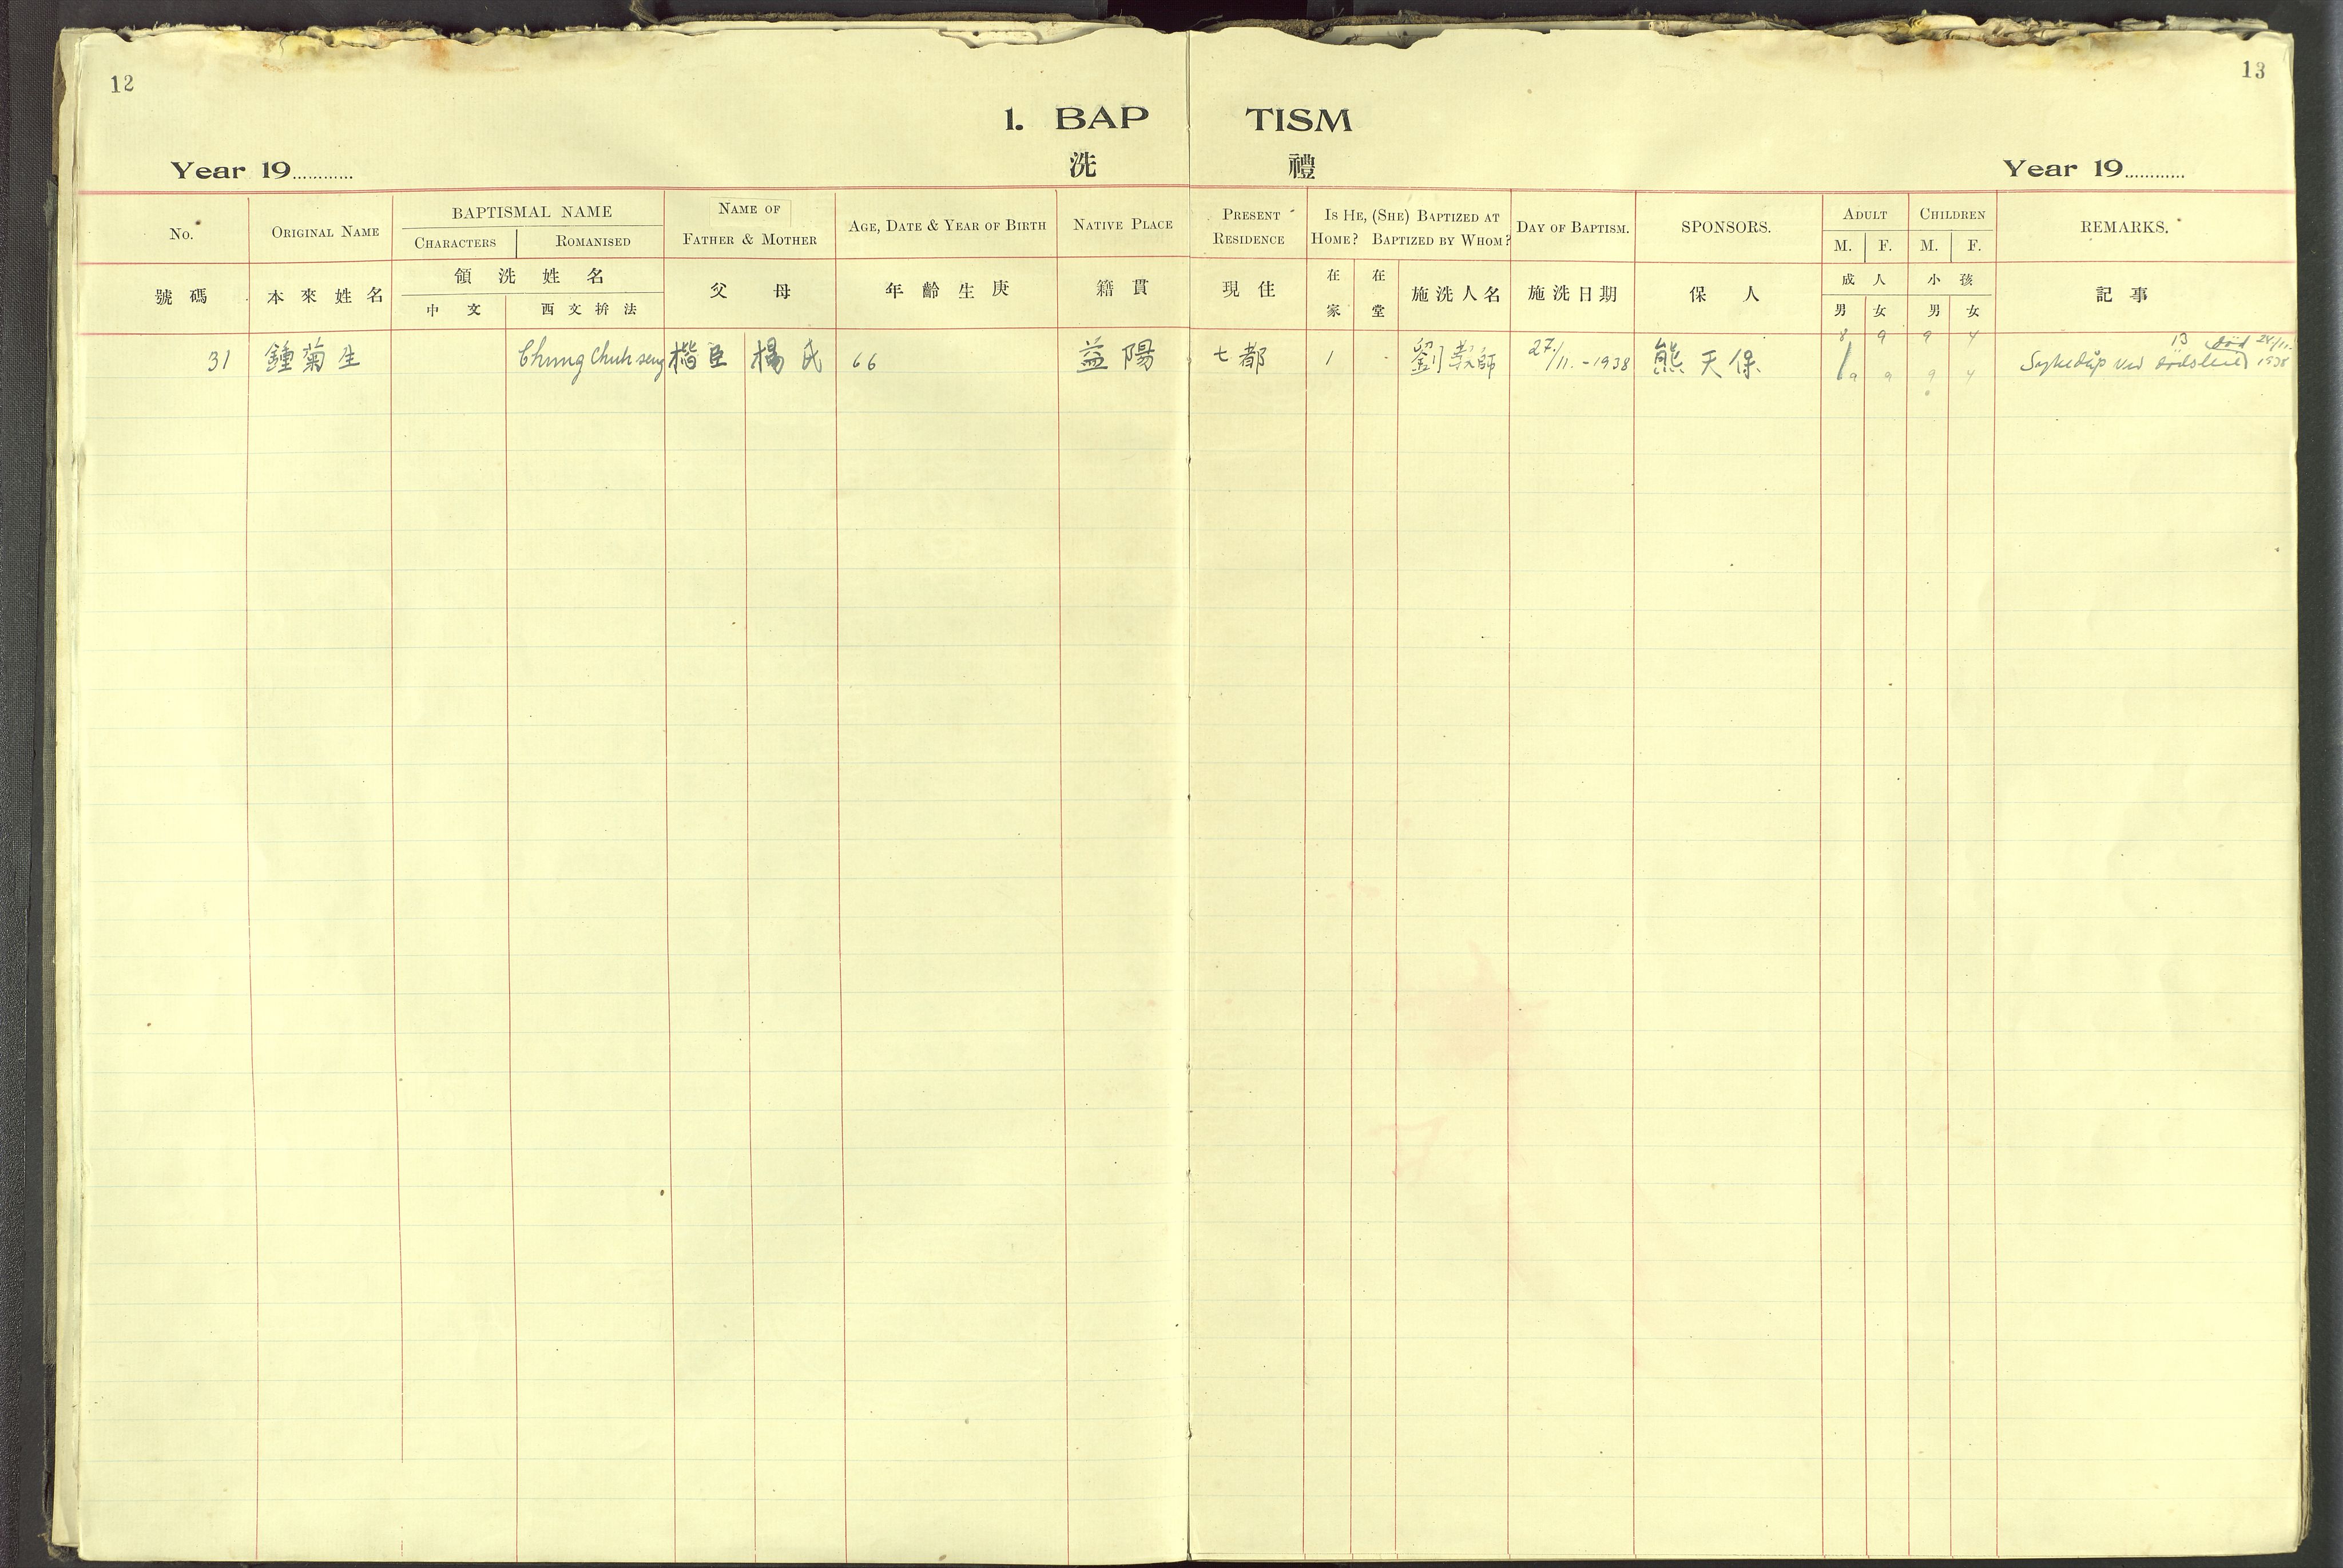 12
13
1. BAPTISM
洗 禮
Year 19............
Year 19............
No.
ORIGINAL NAME
BAPTISMAL NAME
CHARACTERS
ROMANISED
NAME OF
FATHER & MOTHER
AGE, DATE & YEAR OF BIRTH
NATIVE PLACE
PRESENT
RESIDENCE
IS HE, (SHE) BAPTIZED AT
HOME? BAPTIZED BY WHOM?
DAY OF BAPTISM.
SPONSORS.
ADULT
M. F.
CHILDREN
M. F.
REMARKS.
號碼
本來姓名
領洗姓名
中文
西文拚法
父 母
年齡生庚
籍貫
現住
在家
在堂
施洗人名
施洗日期
保人
成人
男 女
小孩
男 女
記事
8 9 9 4 13 död 28/11.
31 鍾菊生 Chung Chuh seng 楷臣 楊氏 66 益陽 七都 1 劉教師 27/11.-1938 熊天保 1 Sykedåp ved dödsleie 1938
9 9 9 4